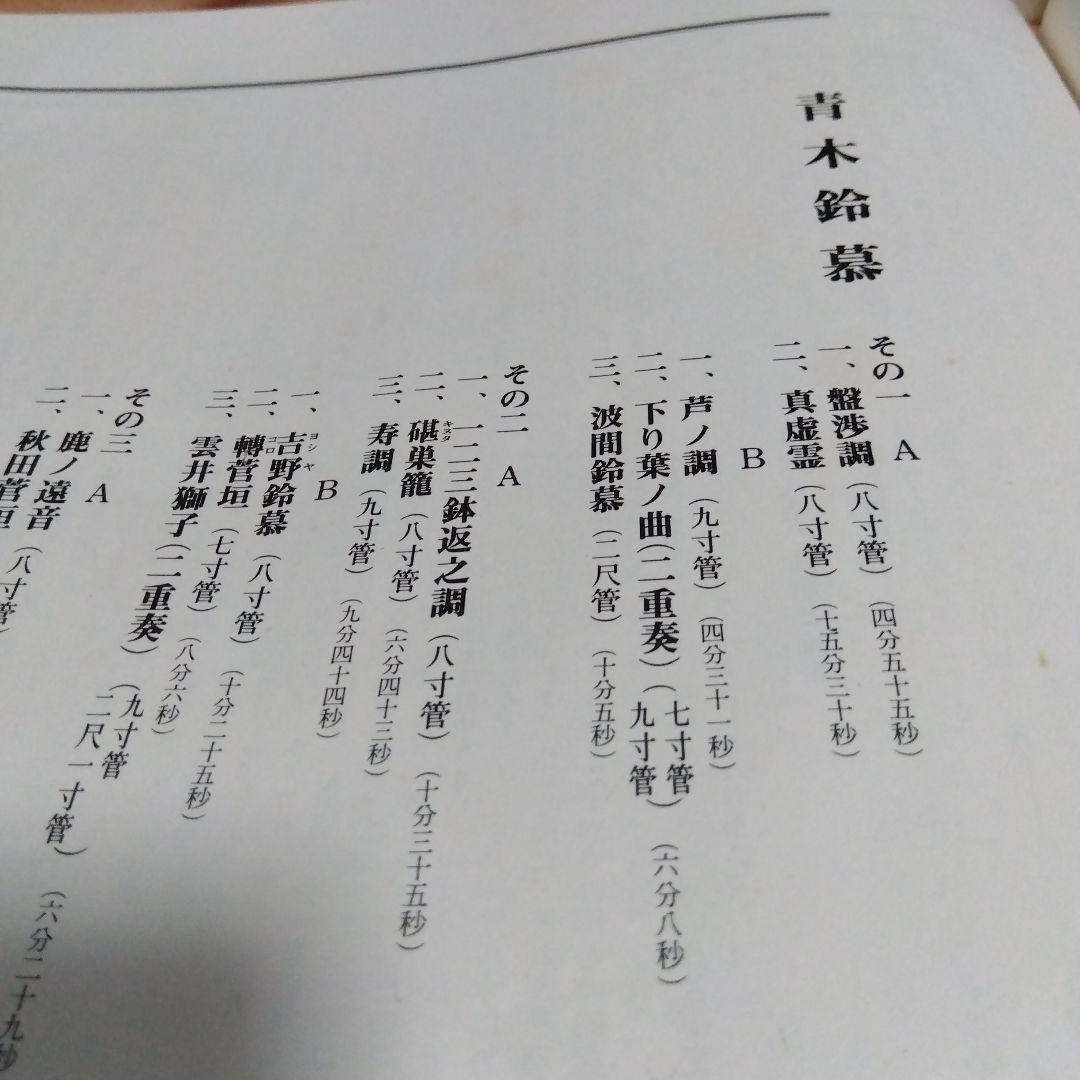 青木鈴慕
その一 A
一、盤渉調（八寸管）（四分五十五秒）
二、真虚霊（八寸管）（十五分三十秒）
B
一、芦ノ調（九寸管）（四分三十一秒）
二、下り葉ノ曲（二重奏）（七寸管 九寸管）（六分八秒）
三、波間鈴慕（二尺管）（十分五秒）
その二 A
一、一二三鉢返之調（八寸管）（十分三十五秒）
二、碪巣籠（八寸管）（六分四十三秒）
キヌタ
三、寿調（九寸管）（九分四十四秒）
B
一、吉野鈴慕（八寸管）（十分二十五秒）
ヨシヤ
二、轉菅垣（七寸管）（八分六秒）
コロ
三、雲井獅子（二重奏）（九寸管 二尺一寸管）（六分二十九秒
その三 A
一、鹿ノ遠音（八寸管）
二、秋田菅垣